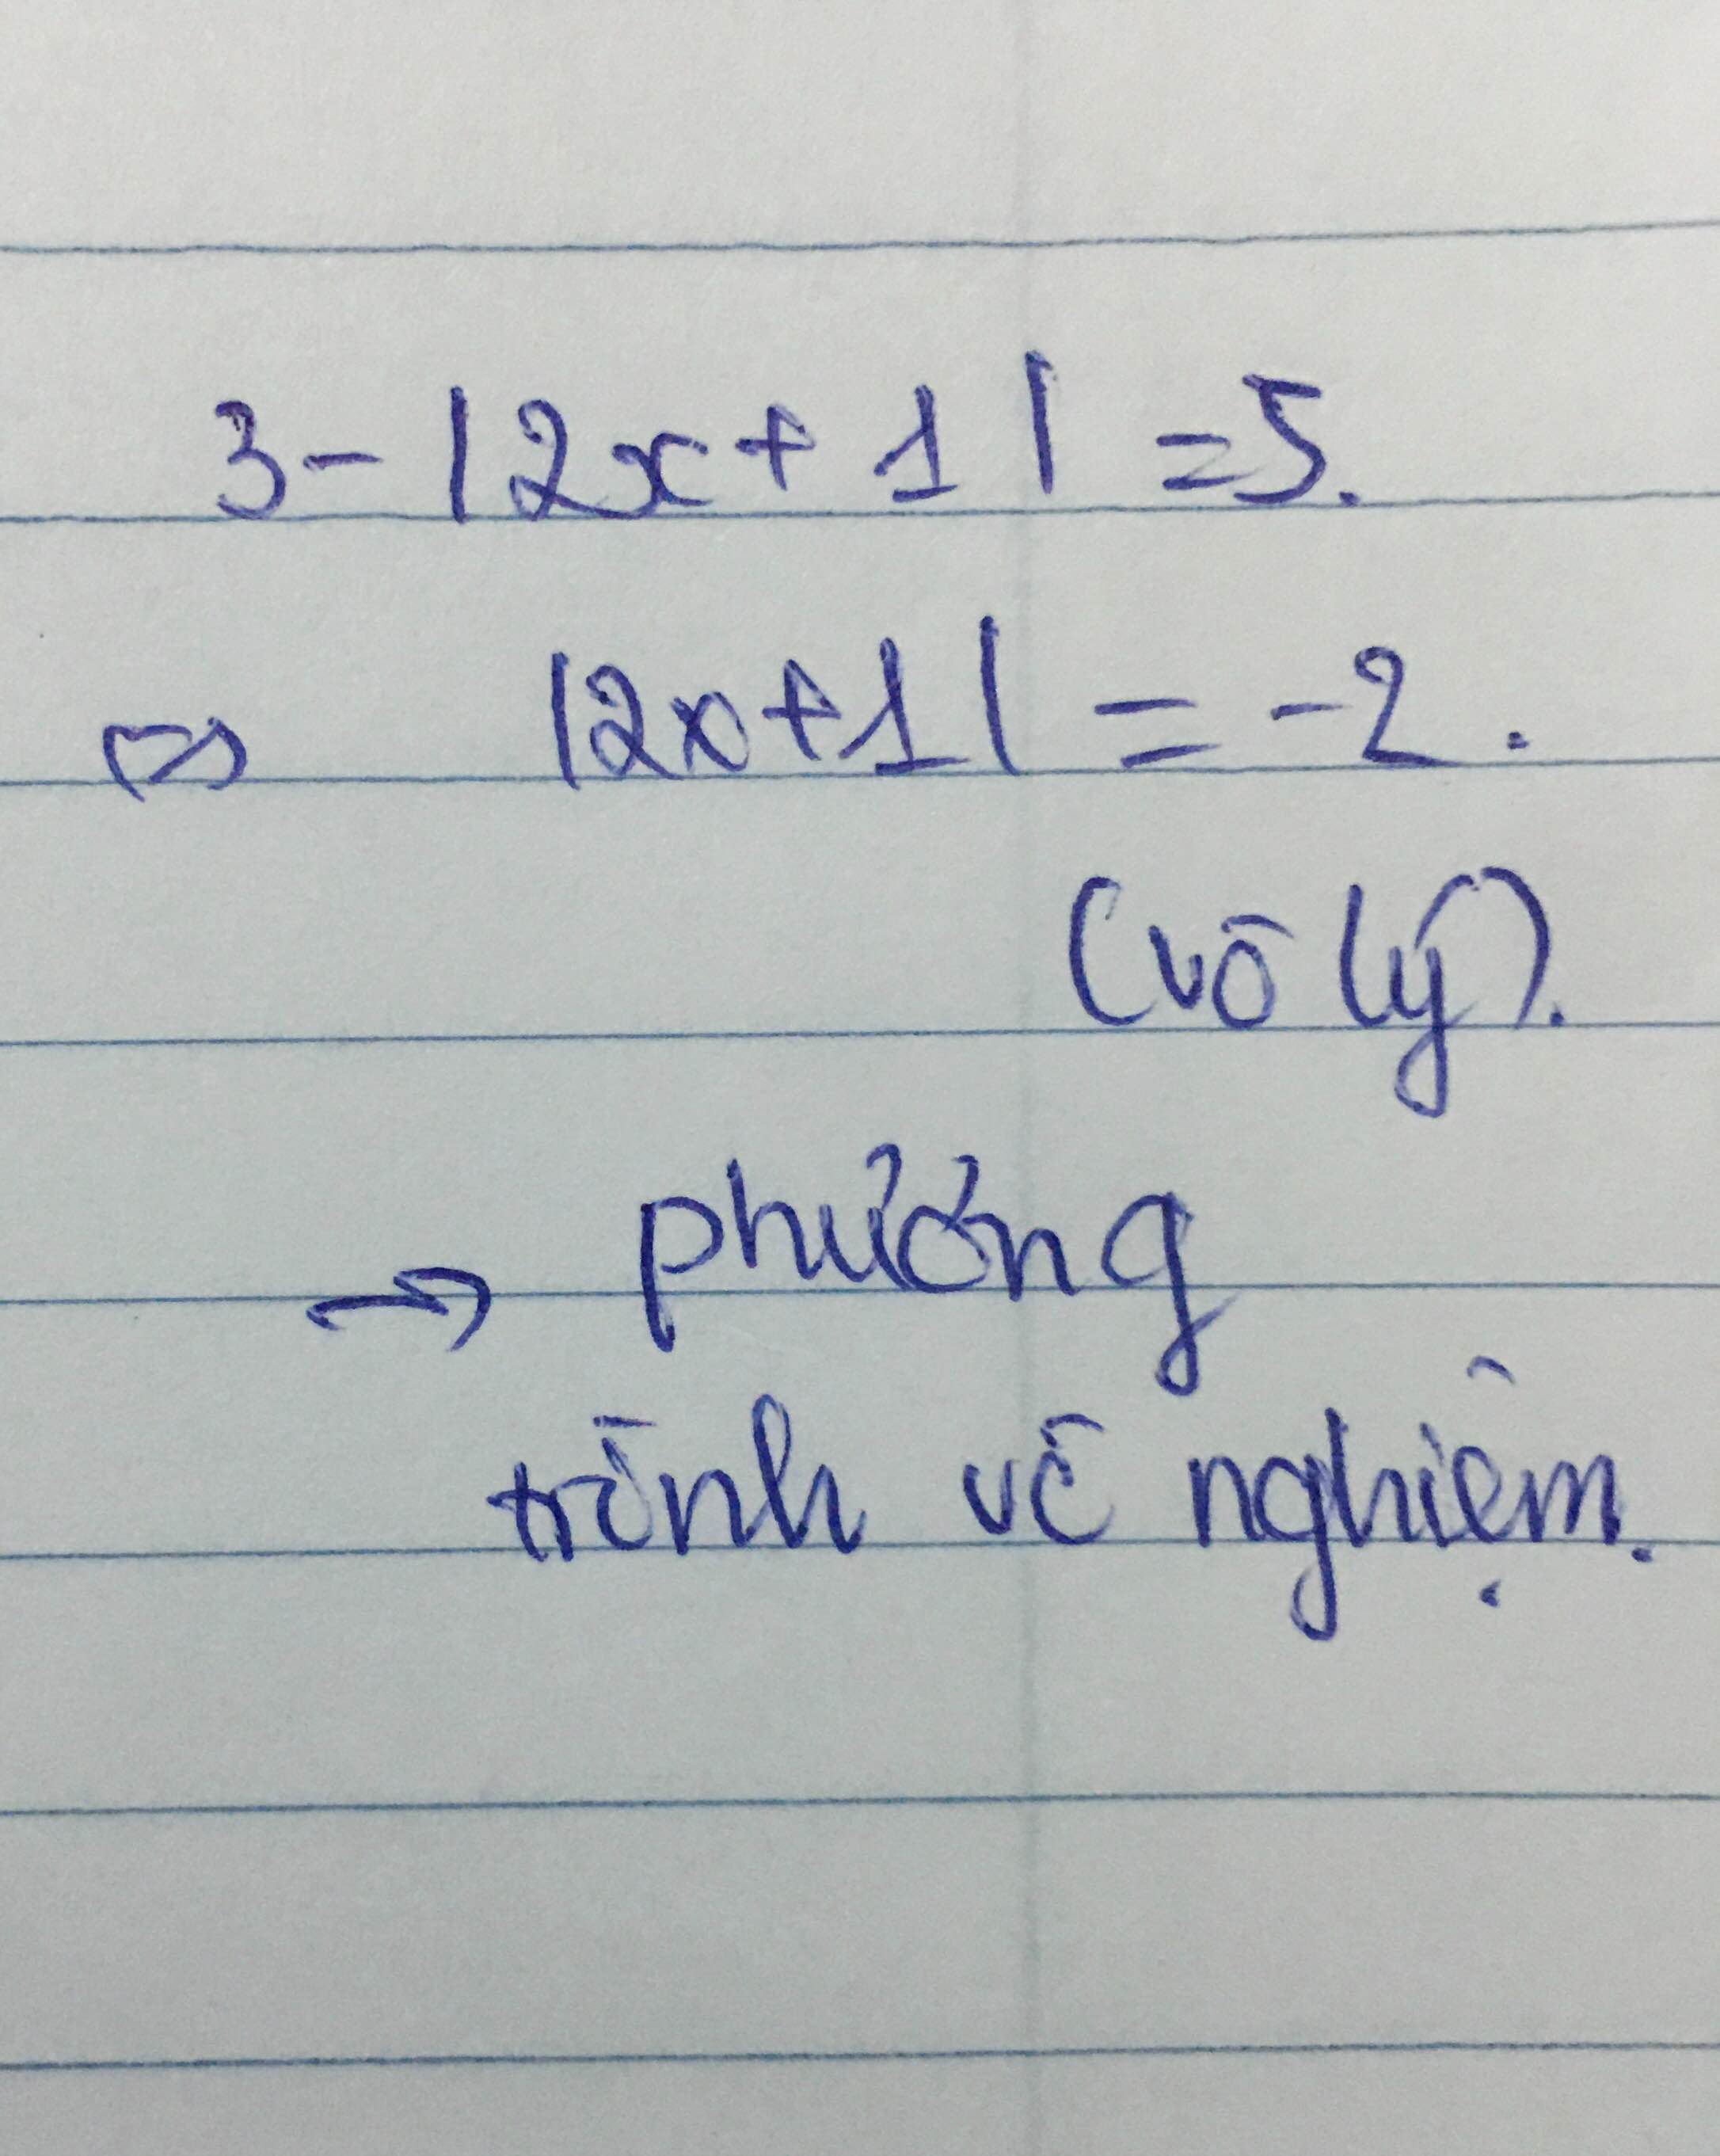 3 - |2x + 1| = 5.
⇔ |2x+1| = -2.
(vô lý).
→ phương
trình vô nghiệm.